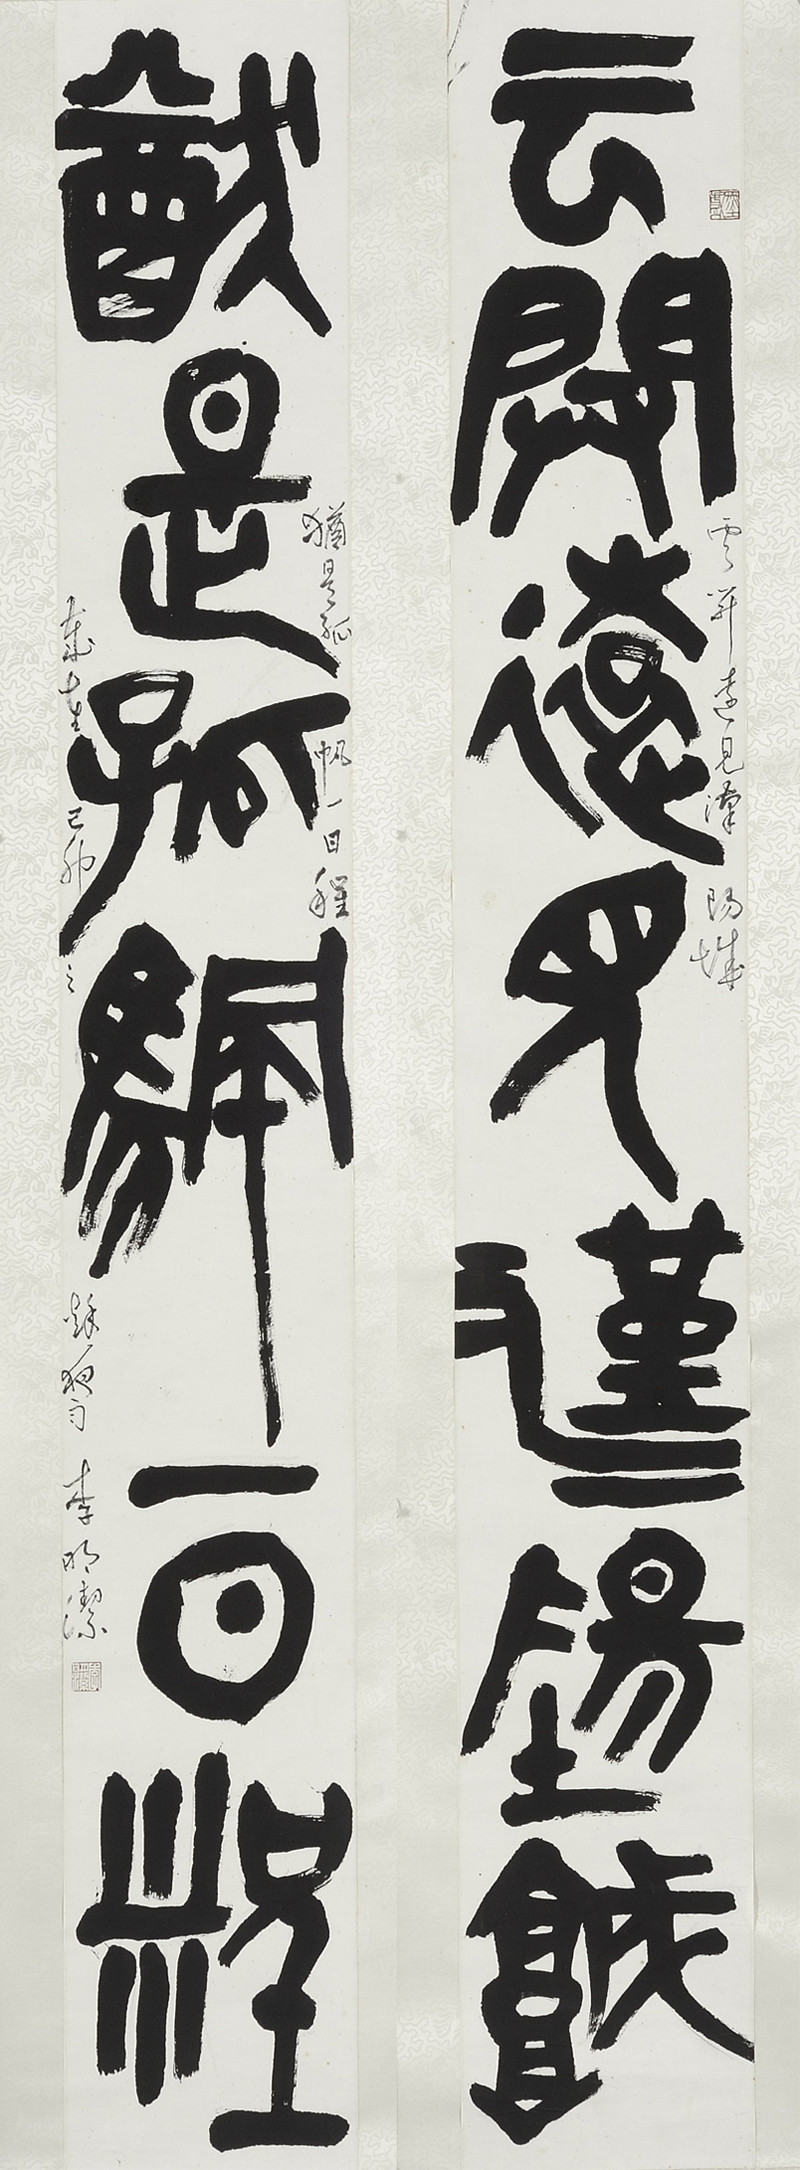 云開遠見漢陽城
雲開遠見漢陽城
猶是孤帆一日程
猶是孤帆一日程
歲在己卯之
李明潔